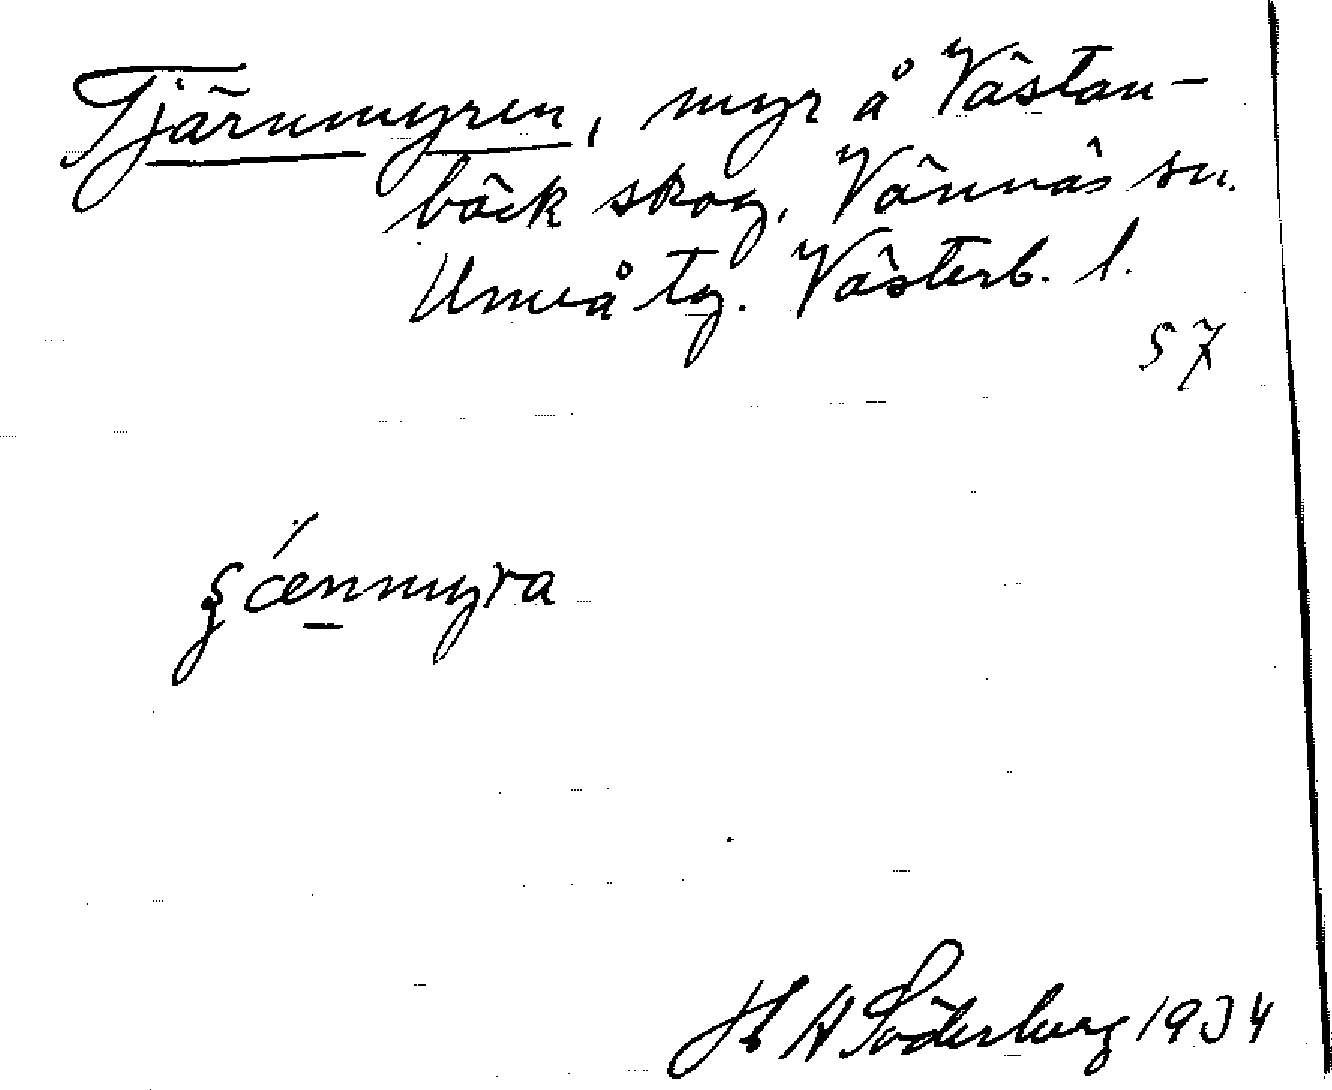 Tjärnmyren, myr å Västan-
bäck skog, Vännäs sn.
Umeå tg. Västerb. l.
57
ʂǽnmyra
H A Söderberg 1934